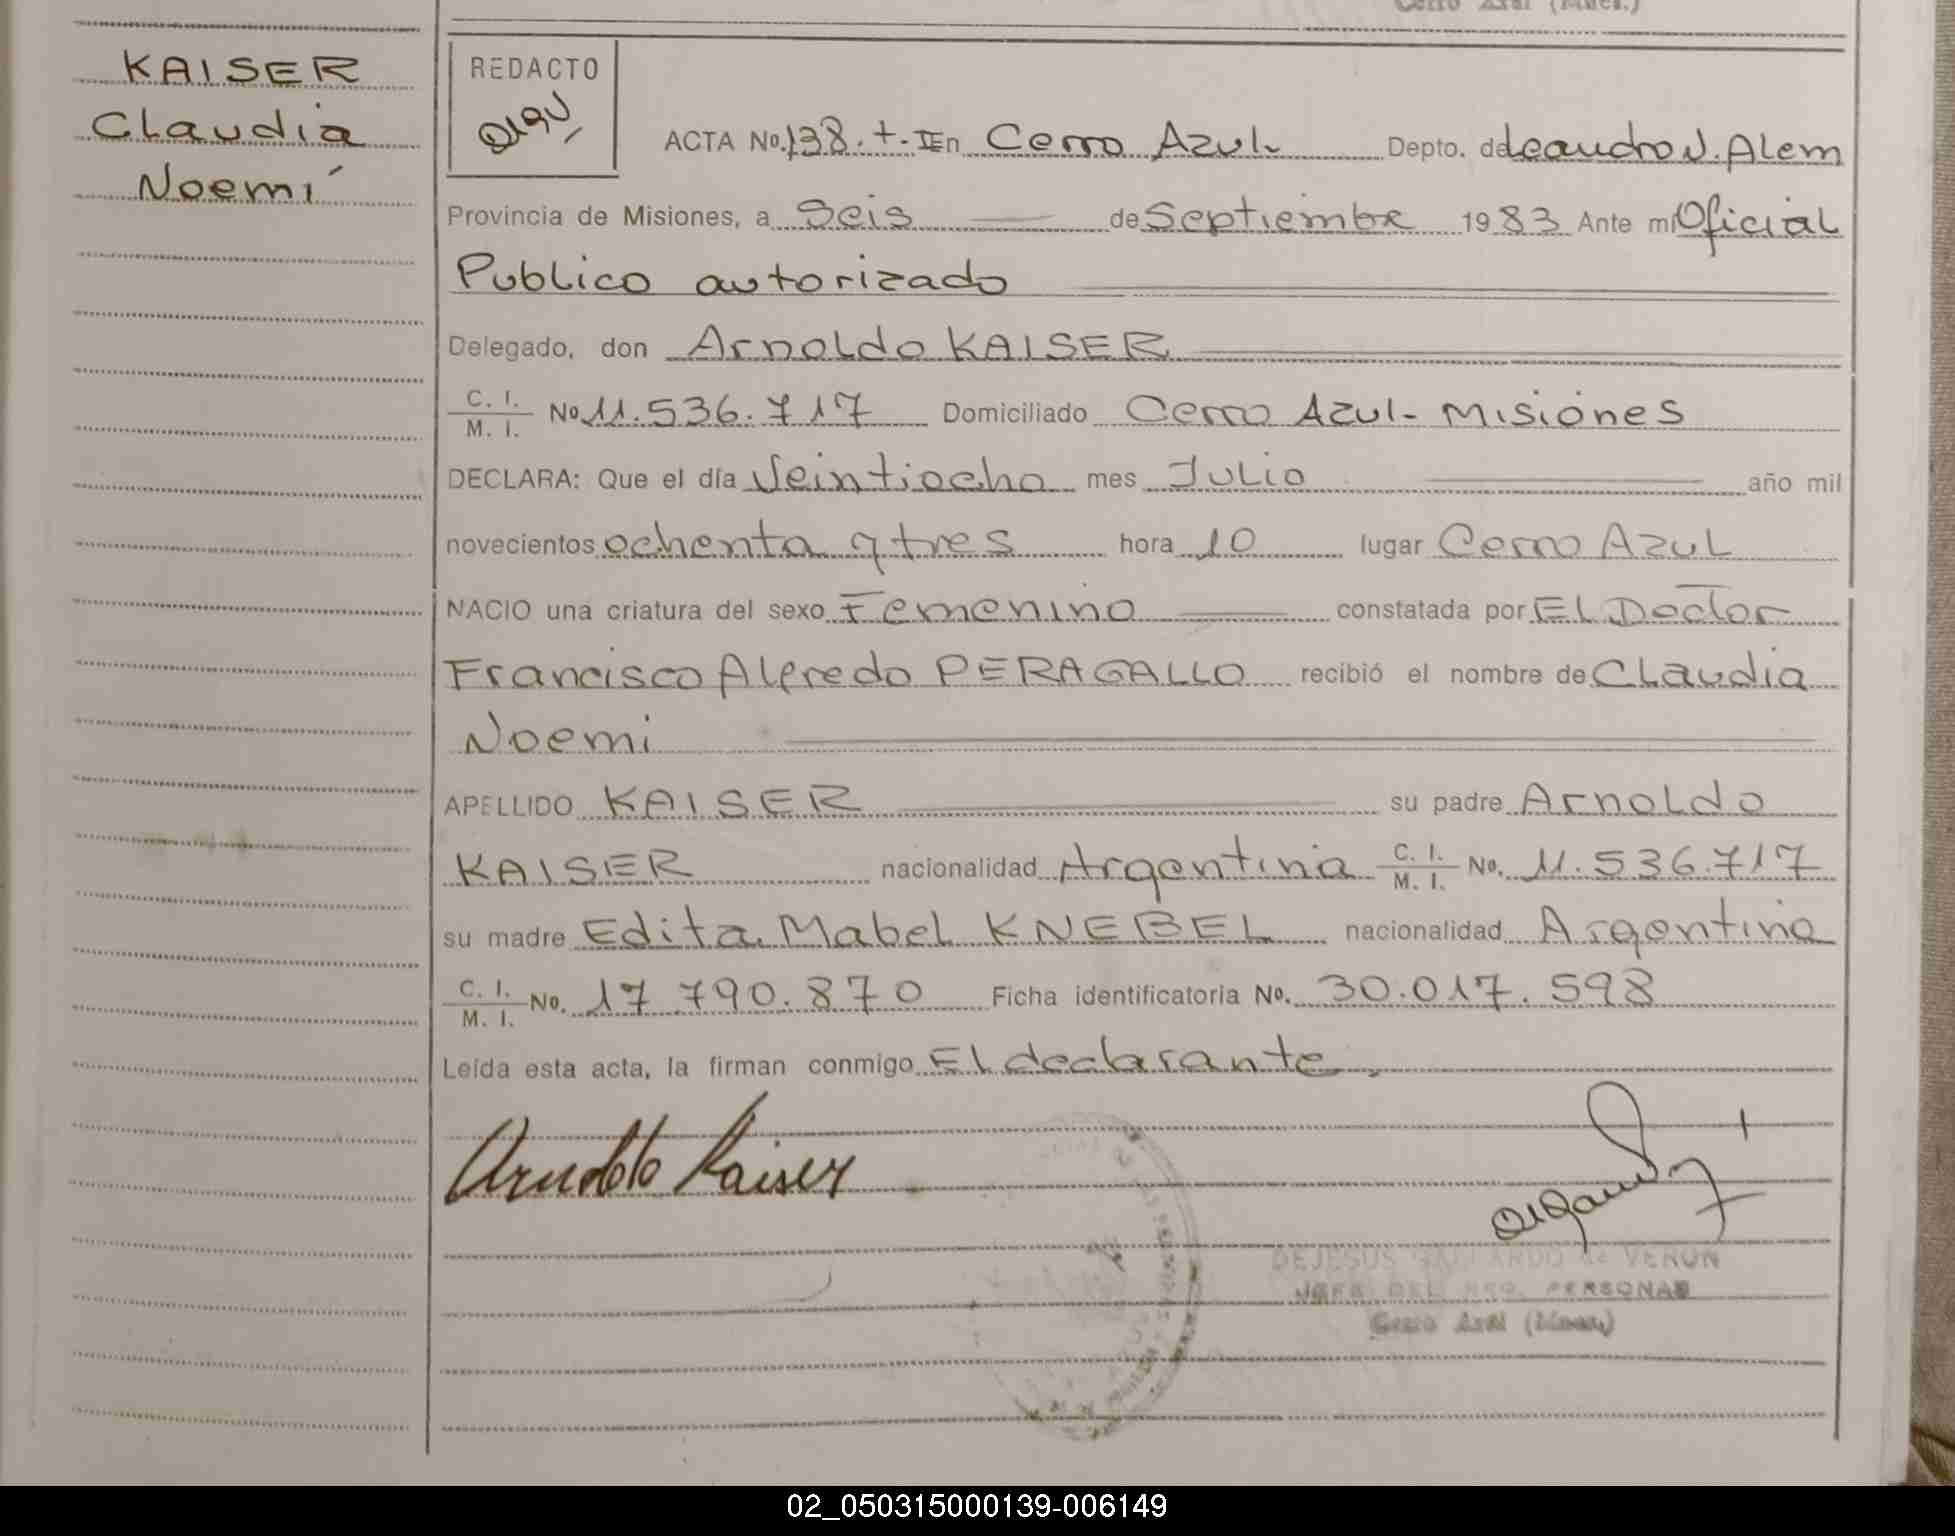 KAISER
Claudia
Noemí
REDACTO
ACTA No. 138. t. I En Cerro Azul Depto. de Leandro N. Alem
Provincia de Misiones, a Seis de Septiembre 1983 Ante mi Oficial
Publico autorizado
Delegado, don Arnoldo KAISER
C. I.
M. I. No 11.536.717 Domiciliado Cerro Azul - Misiones
DECLARA: Que el día Veintiocho mes Julio año mil
novecientos ochenta y tres hora 10 lugar Cerro Azul
NACIO una criatura del sexo Femenino constatada por El Doctor
Francisco Alfredo PERAGALLO recibió el nombre de Claudia
Noemi
APELLIDO KAISER su padre Arnoldo
KAISER nacionalidad Argentina C. I. M. I. No. 11.536.717
su madre Edita Mabel KNEBEL nacionalidad Argentina
C. I.
M. I. No. 17.790.870 Ficha identificatoria No. 30.017.598
Leída esta acta, la firman conmigo El declarante.
Arnoldo Kaiser
DEJESUS de VERON
JEFE DEL REG. PERSONAS
Cerro Azul (Mnes.)
02_050315000139-006149